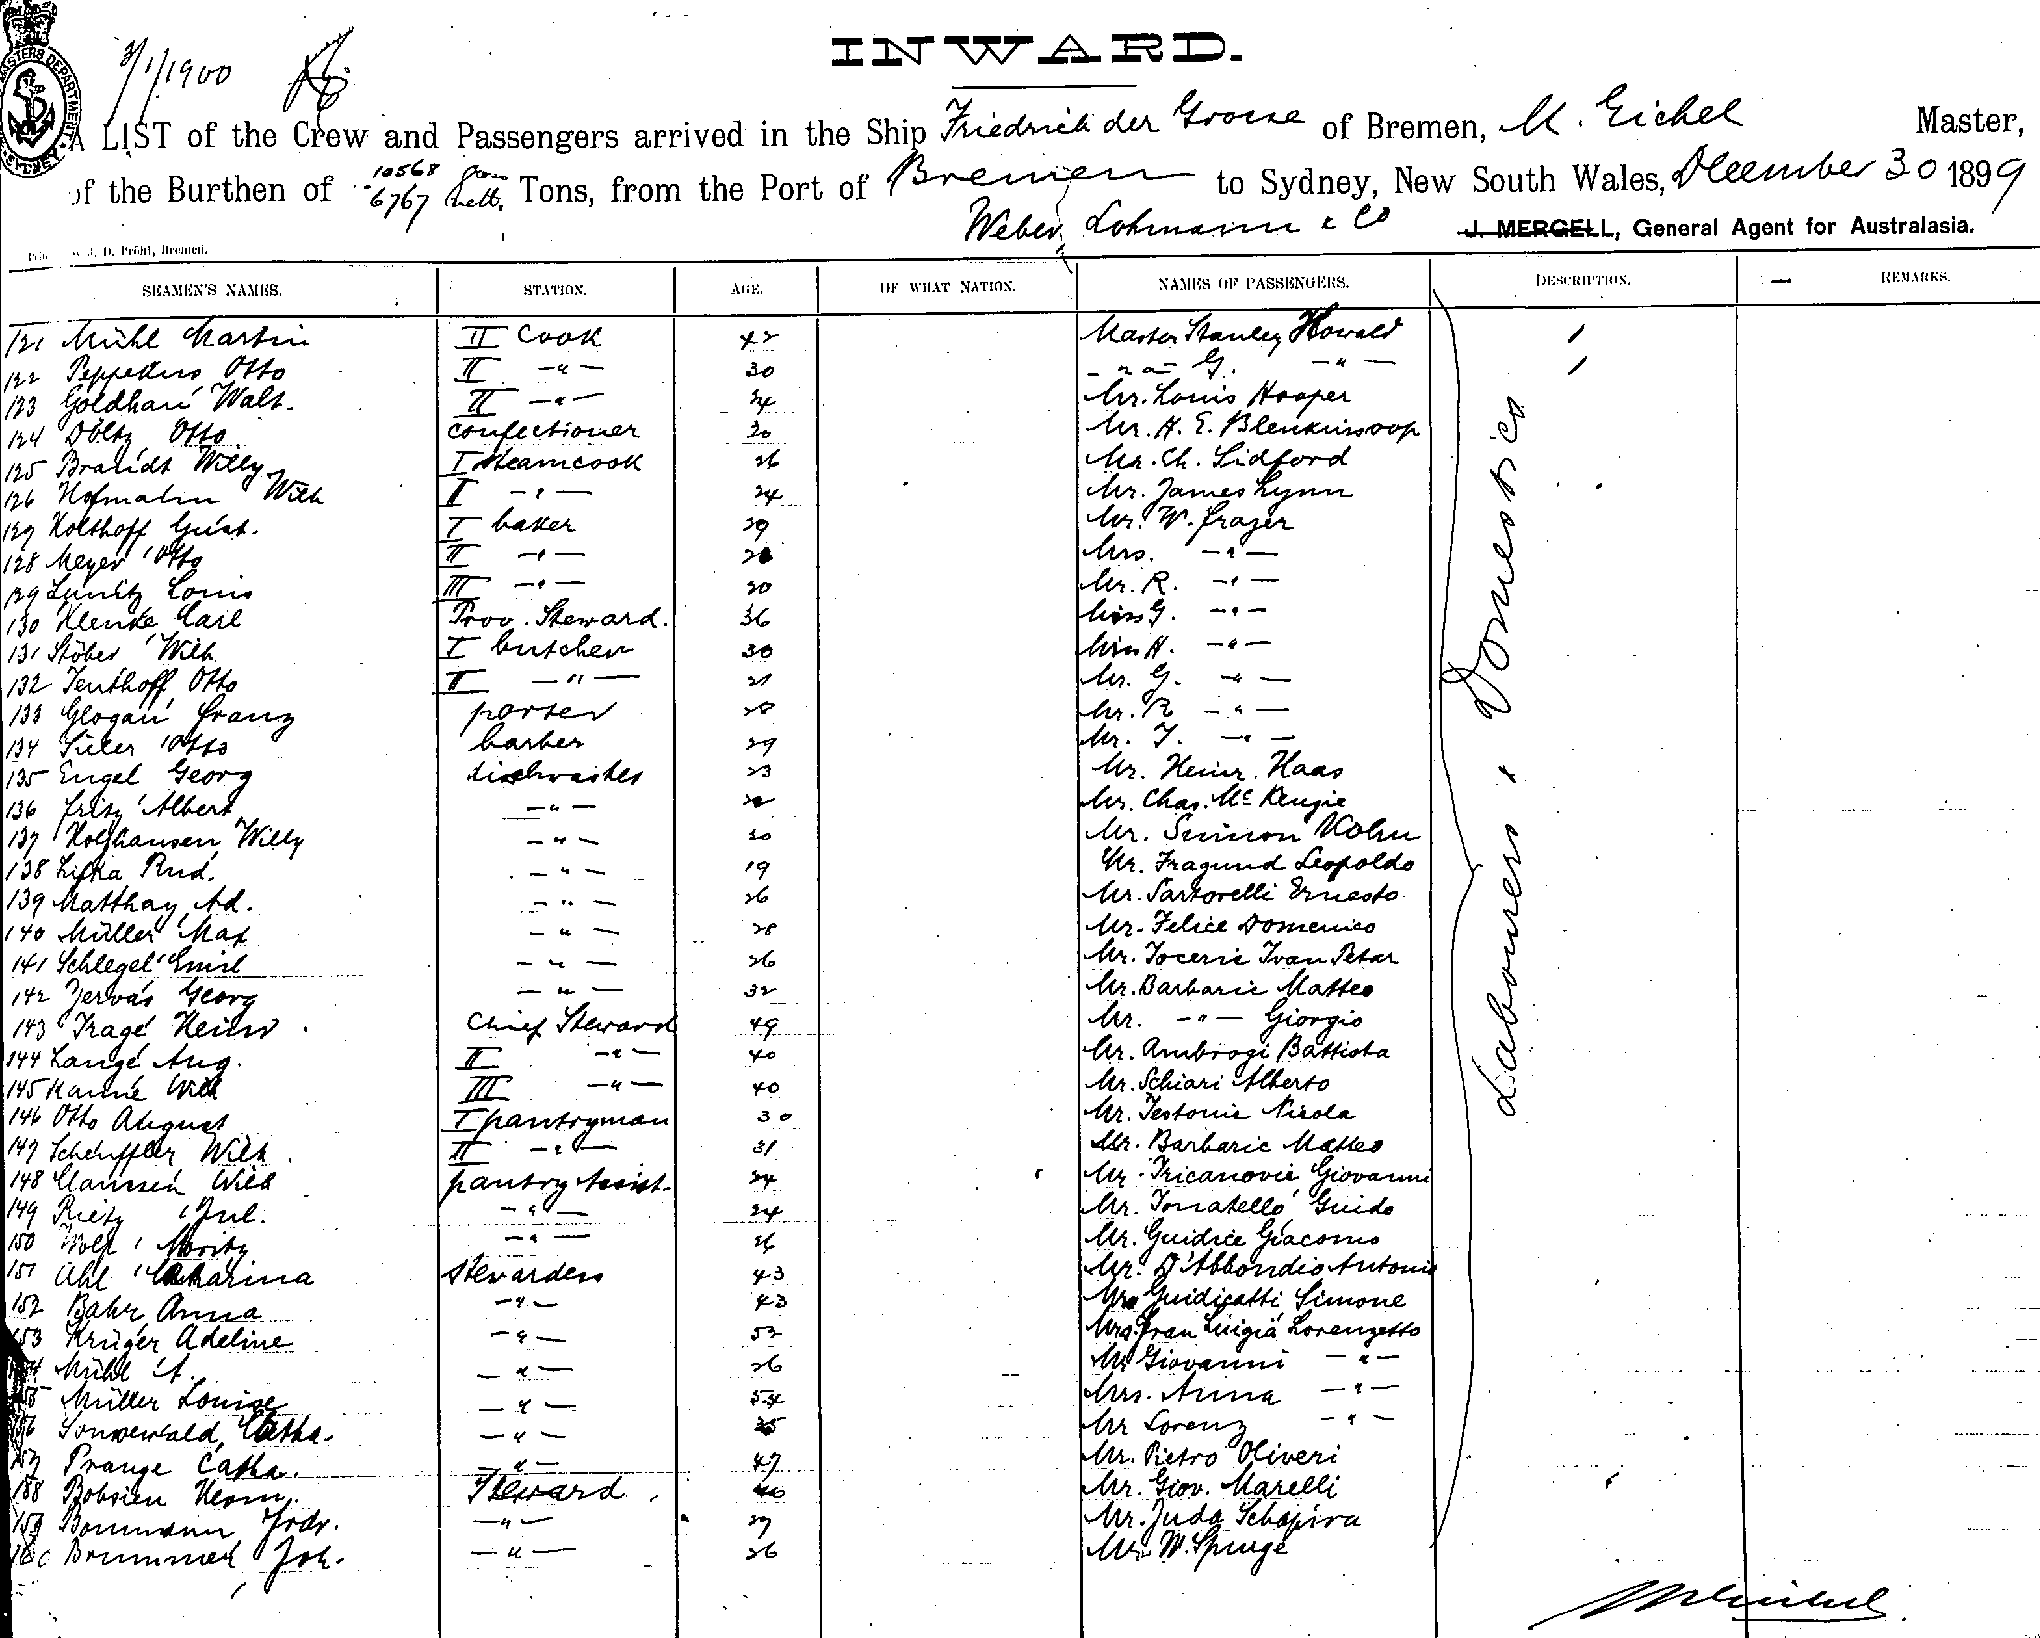 INWARD.
3/1/1900
A LIST of the Crew and Passengers arrived in the Ship Friedrich der Grosse of Bremen, M. Eichel Master,
of the Burthen of 10568 gross 6767 nett. Tons, from the Port of Bremen to Sydney, New South Wales, December 30 1899
Weber, Lohmann & Co J. MERGELL, General Agent for Australasia.
J. D. Pröhl, Bremen.
SEAMEN'S NAMES. STATION. AGE. OF WHAT NATION. NAMES OF PASSENGERS. DESCRIPTION. — REMARKS.
121 Mühl Martin II Cook 42 Master Stanley Howald
122 Otto II —"— 30 —"— G. —"—
123 Walt. II —"— 24 Mr. Louis Hooper
124 Döltz Otto confectioner 30 Mr. H. E. Blenkinsoop
125 Brandt Willy I steamcook 26 Mr. Ch. Sidford
126 Hofmann Wilh II —"— 24 Mr. James Lynn
127 Holthoff Gust. I baker 29 Mr. W. Frazer
128 Meyer Otto II —"— Mrs. —"—
129 Louis III —"— 20 Mr. R. —"—
130 Henke Carl Prov. Steward. 36 Miss G. —"—
131 Stöber Wilh I butcher 30 Miss H. —"—
132 Tenthoff Otto II —"— 21 Mr. G. —"—
133 Glogau Franz porter 28 Mr. R —"—
134 Otto barber 29 Mr. T. —"—
135 Engel Georg dishwasher 23 Mr. Heinr. Haas
136 Fritz Albert —"— Mr. Chas. McKenzie
137 Holzhausen Willy —"— 20 Mr. Simon Kohn
138 Lipka Rud. —"— 19 Mr. Fragund Leopoldo
139 Matthay Ad. —"— 26 Mr. Sartorelli Ernesto
140 Müller Max —"— 28 Mr. Felice Domenico
141 Schlegel Emil —"— 26 Mr. Ivan Petar
142 Zervas Georg —"— 32 Mr. Barbarie Matteo
143 Trage Heinr Chief Steward 49 Mr. —"— Giorgio
144 Lange Aug. II —"— 40 Mr. Ambrogi Battista
145 Hanne Wilh III —"— 40 Mr. Schiari Alberto
146 Otto August I pantryman 30 Mr. Testonie Nicola
147 Scheffler Wilh. II —"— 31 Mr. Barbarie Matteo
148 Claussen Wilh pantry Assist. 24 Mr. Tricanovie Giovanni
149 Rietz Jul. —"— 24 Mr. Guido
150 Wolf Moritz —"— 26 Mr. Guidice Giacomo
151 Ahl Catharina Stewardess 43 Mr. D'Abbondio Antonio
152 Bahr Anna —"— 43 Mrs Guidicatti Simone
153 Krüger Adeline —"— 52 Mrs. Luigia Lorenzetto
154 Mühl A. —"— 26 Mr Giovanni —"—
155 Müller Louise —"— 54 Mrs. Anna —"—
156 Catha. —"— Mr Lorenz —"—
157 Prange Catha. —"— 47 Mr. Pietro Oliveri
158 Bobsien Herm. Steward Mr. Giov. Marelli
159 Bornmann Frdr. —"— 29 Mr. Juda Schapira
160 Brummer Joh. —"— 26 Mr. W. Spurge
Labourers & Domestics